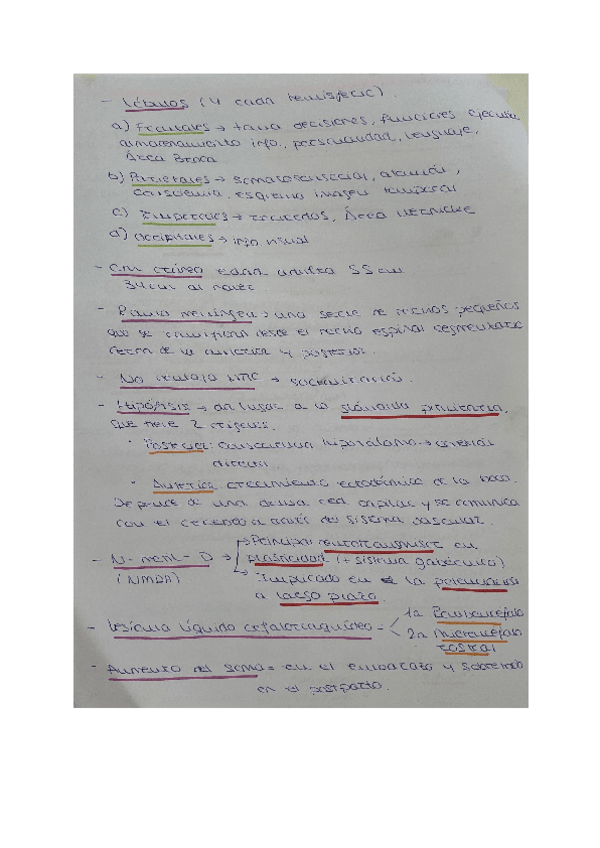 - Lóbulos (4 cada hemisferio).
a) Frontales → toma decisiones, funciones ejecutiva
almacenamiento info., personalidad, lenguaje,
Área Broca
b) Parietales → somatosensorial, atención,
consciencia, esquema imagen temporal
c) Temporales → recuerdos, Área Wernicke
d) occipitales → info visual
- Cm cráneo edad adulta 55 cm
34 cm al nacer
- Rama meníngea: una serie de ramos pequeños
que se ramifican desde el ramo espinal segmentario
cerca de la anterior y posterior.
- No trabaja → sacaudicación.
- Hipófisis → da lugar a la glándula pituitaria,
que tiene 2 orígenes.
• Posterior: hipotálamo → conexión
directa.
• Anterior: crecimiento ectodérmico de la boca.
Depende de una densa red capilar y se comunica
con el cerebro a través del sistema vascular.
- N-metil-D → Principal neurotransmisor en
(NMDA) plasticidad (+ sistema gabaérgico)
→ Implicado en la potenciación
a largo plazo.
- Vesícula líquido cefalorraquídeo = 1a
2a
rostral
- Aumento del soma = en el embarazo y sobretodo
en el postparto.